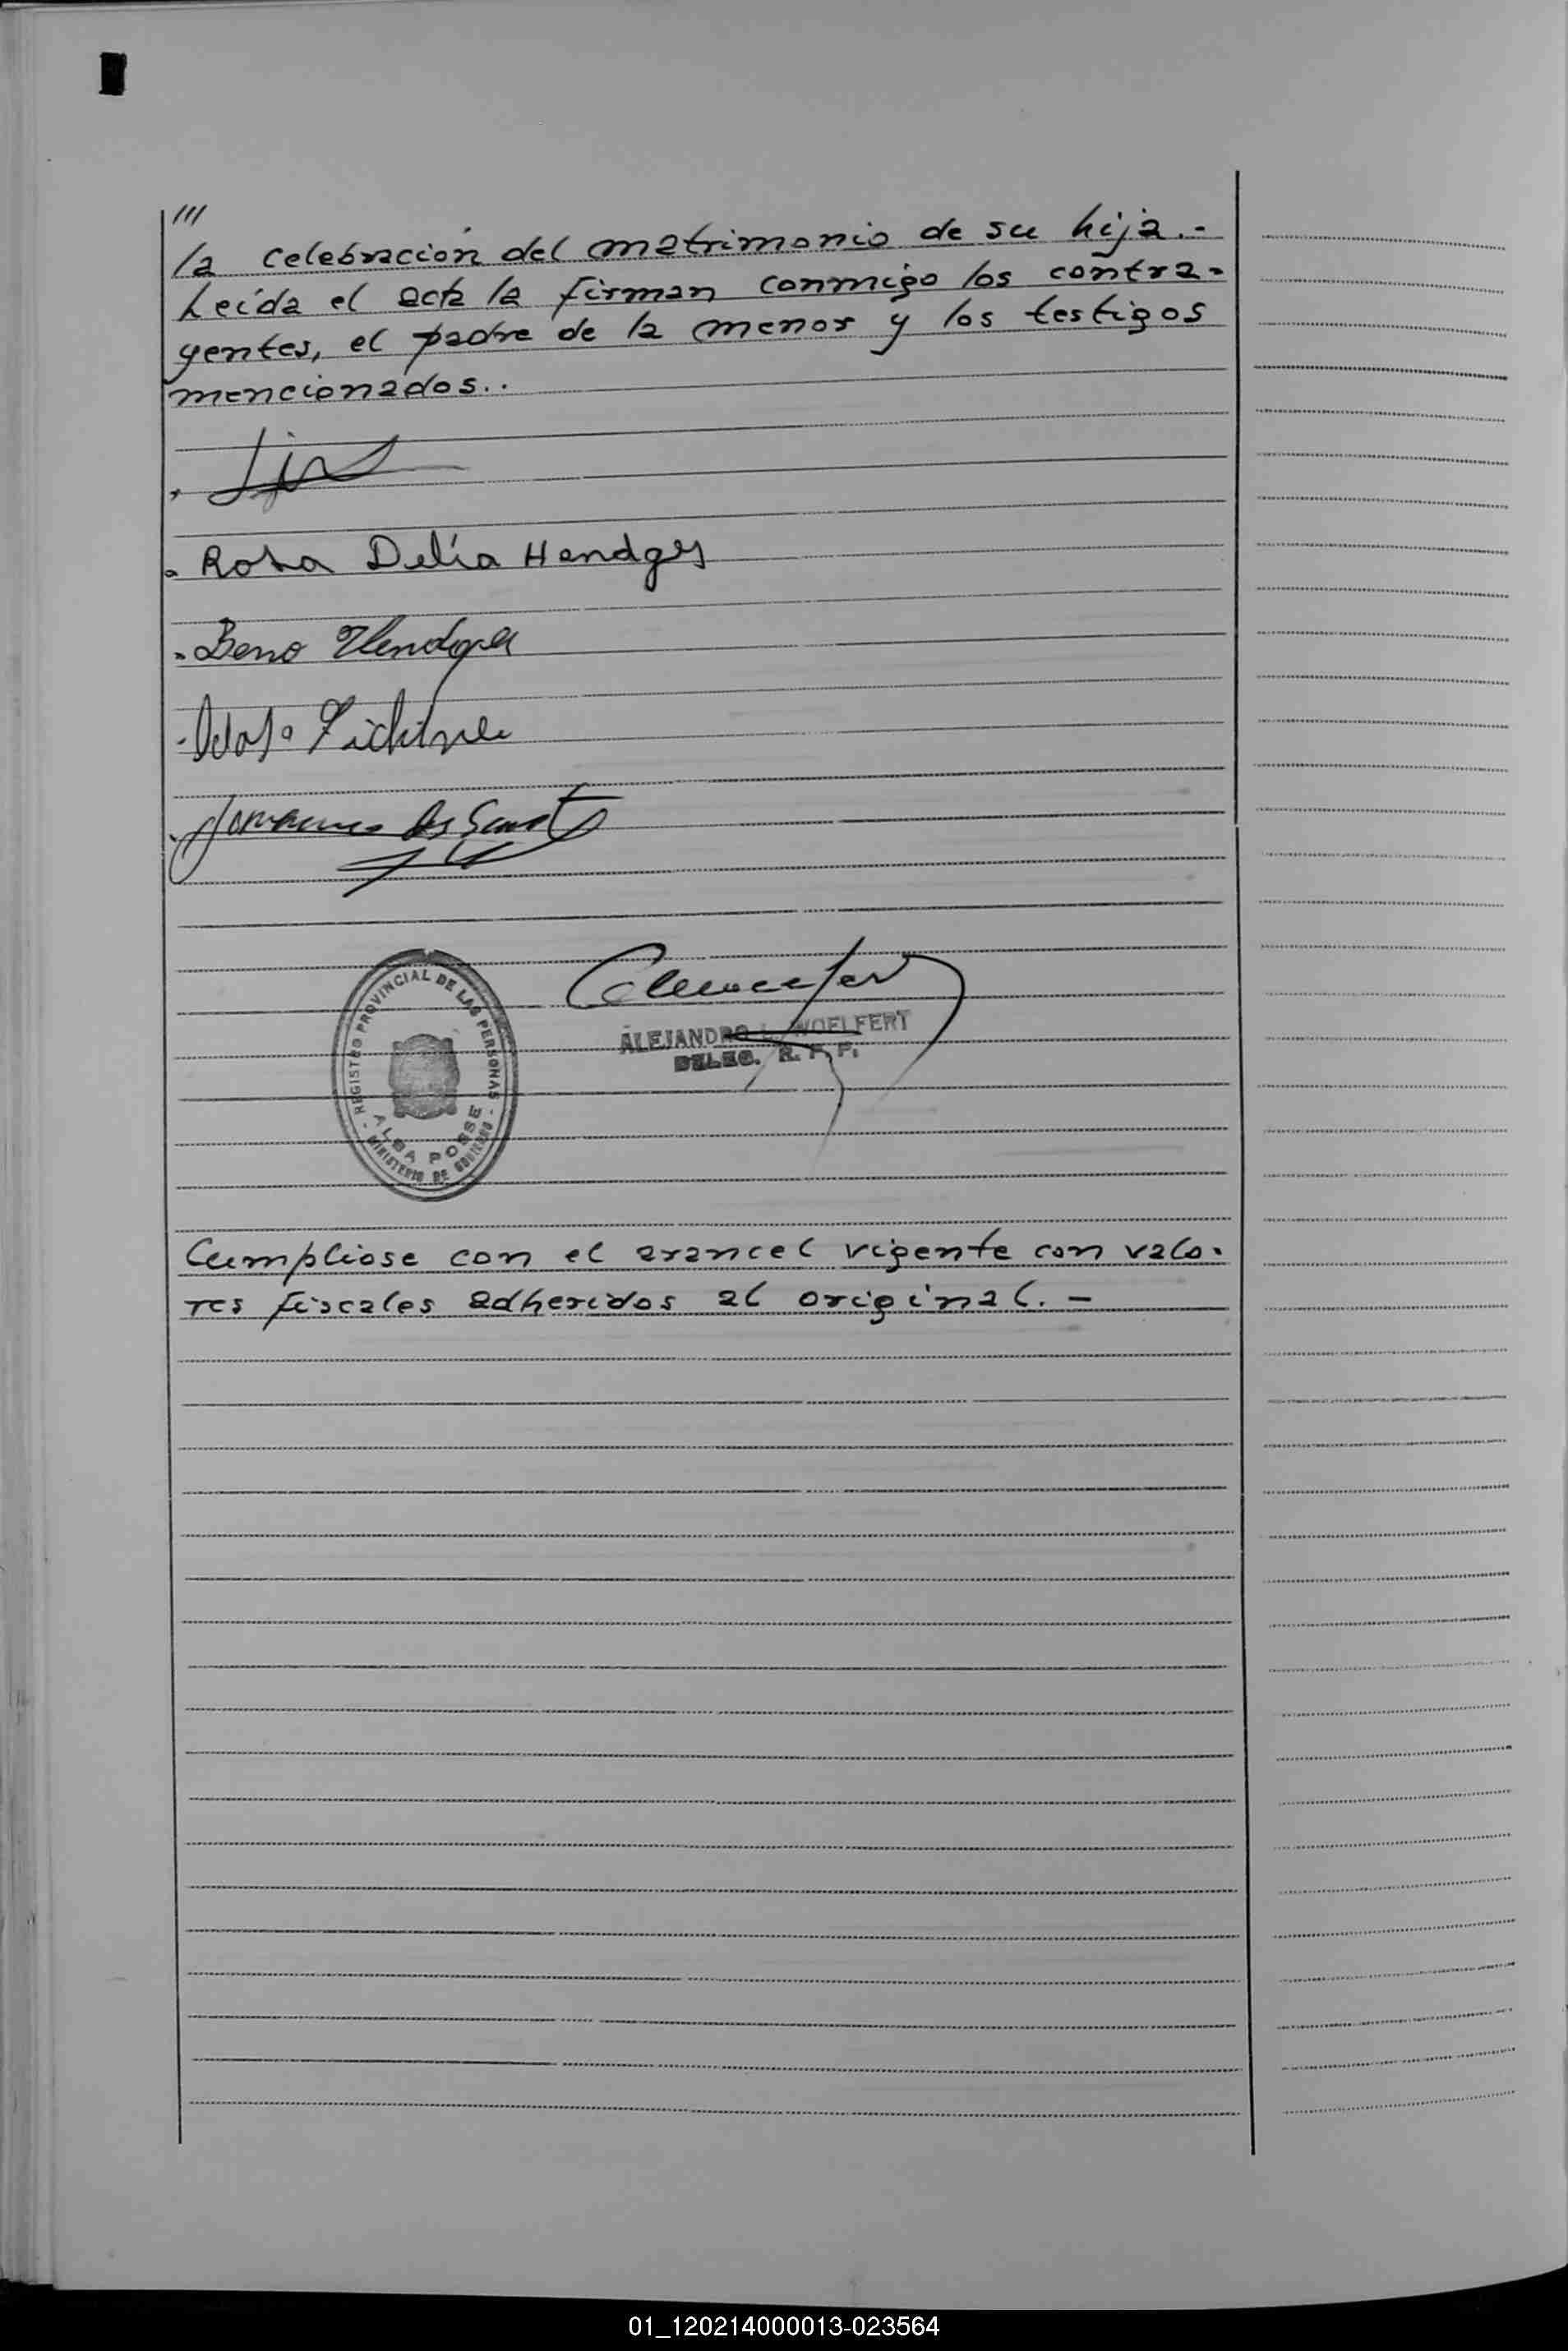 ///
la celebración del matrimonio de su hija.-
Leída el acta la firman conmigo los contra-
yentes, el padre de la menor y los testigos
mencionados..
Rosa Delia Hendges
Beno Hendges
dos Santos
REGISTRO PROVINCIAL DE LAS PERSONAS
ALBA POSSE
MINISTERIO DE GOBIERNO
ALEJANDRO L. WOELFERT
DELEG. R. P. P.
Cumpliose con el arancel vigente con valo-
res fiscales adheridos al original. -
01_120214000013-023564